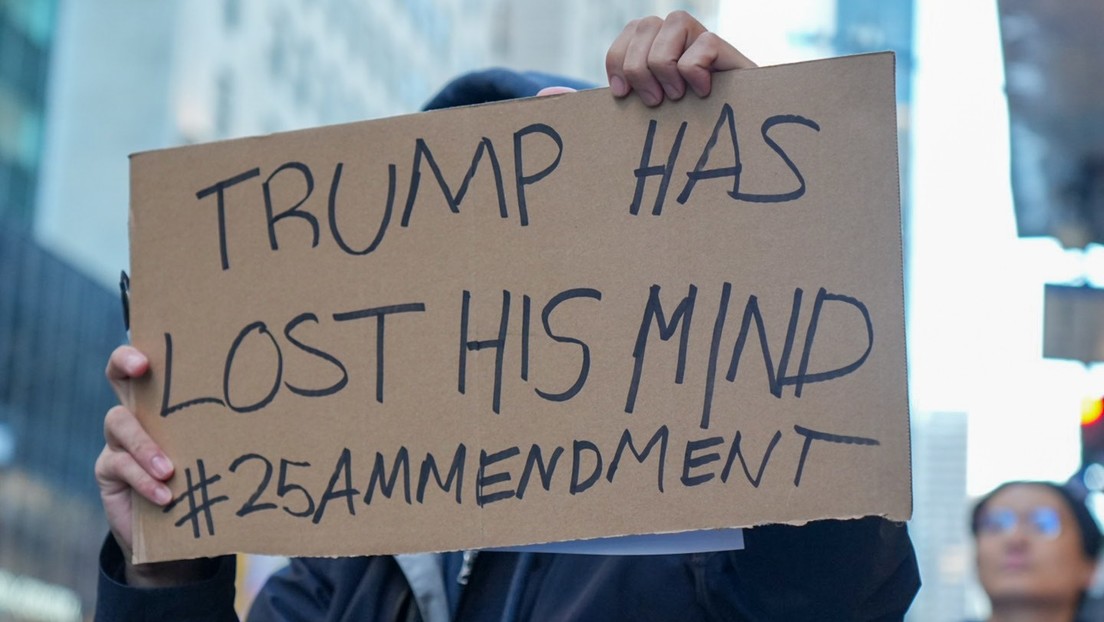 TRUMP HAS
LOST HIS MIND
#25AMMENDMENT